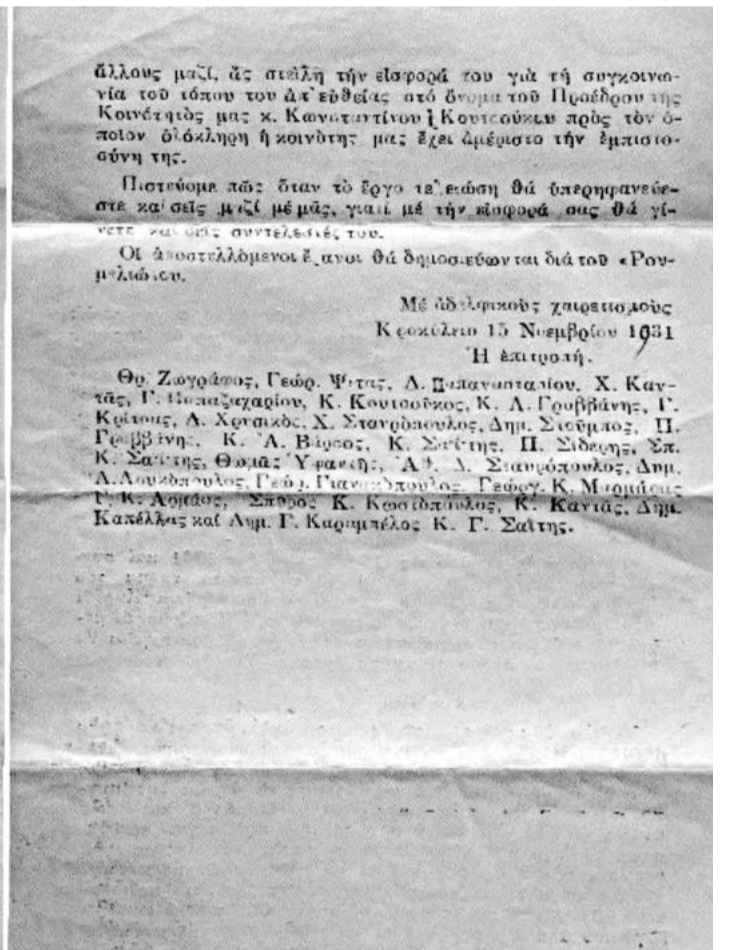 ἄλλους μαζί, ἄς στείλη τήν εἰσφορά του γιὰ τή συγκοινω-
νία τοῦ τόπου του ἀπ' εὐθείας στό ὄνομα τοῦ Προέδρου της
Κοινότητὸς μας κ. Κωνσταντίνου Κουτσούκου πρὸς τὸν ὁ-
ποῖον ὁλόκληρη ἡ κοινότης μας ἔχει ἀμέριστο τήν ἐμπιστο-
σύνη της.
Πιστεύομε πῶς ὅταν τὸ ἔργο τελειώση θά ὑπερηφανεύε-
στε καί σεῖς μαζί μέ μᾶς, γιατί μέ τήν εἰσφορά σας θά γί-
νετε καί σεῖς συντελεσιές του.
Οἱ ἀποστελλόμενοι ἔρανοι θά δημοσιεύωνται διά τοῦ «Ρου-
μελιώτου.
Μέ ἀδελφικοὺς χαιρετισμοὺς
Κροκύλειο 15 Νοεμβρίου 1931
Ἡ ἐπιτροπή.
Θρ. Ζωγράφος, Γεώρ. Ψιτας, Α. Παπαναστασίου, Χ. Καν-
τᾶς, Γ. Παπαζαχαρίου, Κ. Κουτσοῦκος, Κ. Λ. Γραββάνης, Γ.
Κρίτσας, Α. Χρυσικὸς, Χ. Σταυρόπουλος, Δημ. Στοῦμπος, Π.
Γραββάνης, Κ. Α. Βάρσος, Κ. Σαΐτης, Π. Σιδερης, Σπ.
Κ. Σαΐτης, Θωμᾶς Ὑφαντῆς, Ἀθ. Δ. Σταυρόπουλος, Δημ.
Λ. Λουκόπουλος, Γεώρ. Γιανακόπουλος, Γεώργ. Κ. Μαρμάρας
Γ. Κ. Αρμάος, Σπῦρος Κ. Κωστόπουλος, Κ. Καντᾶς, Δημ.
Καπέλλας καί Δημ. Γ. Καραμπέλος Κ. Γ. Σαΐτης.